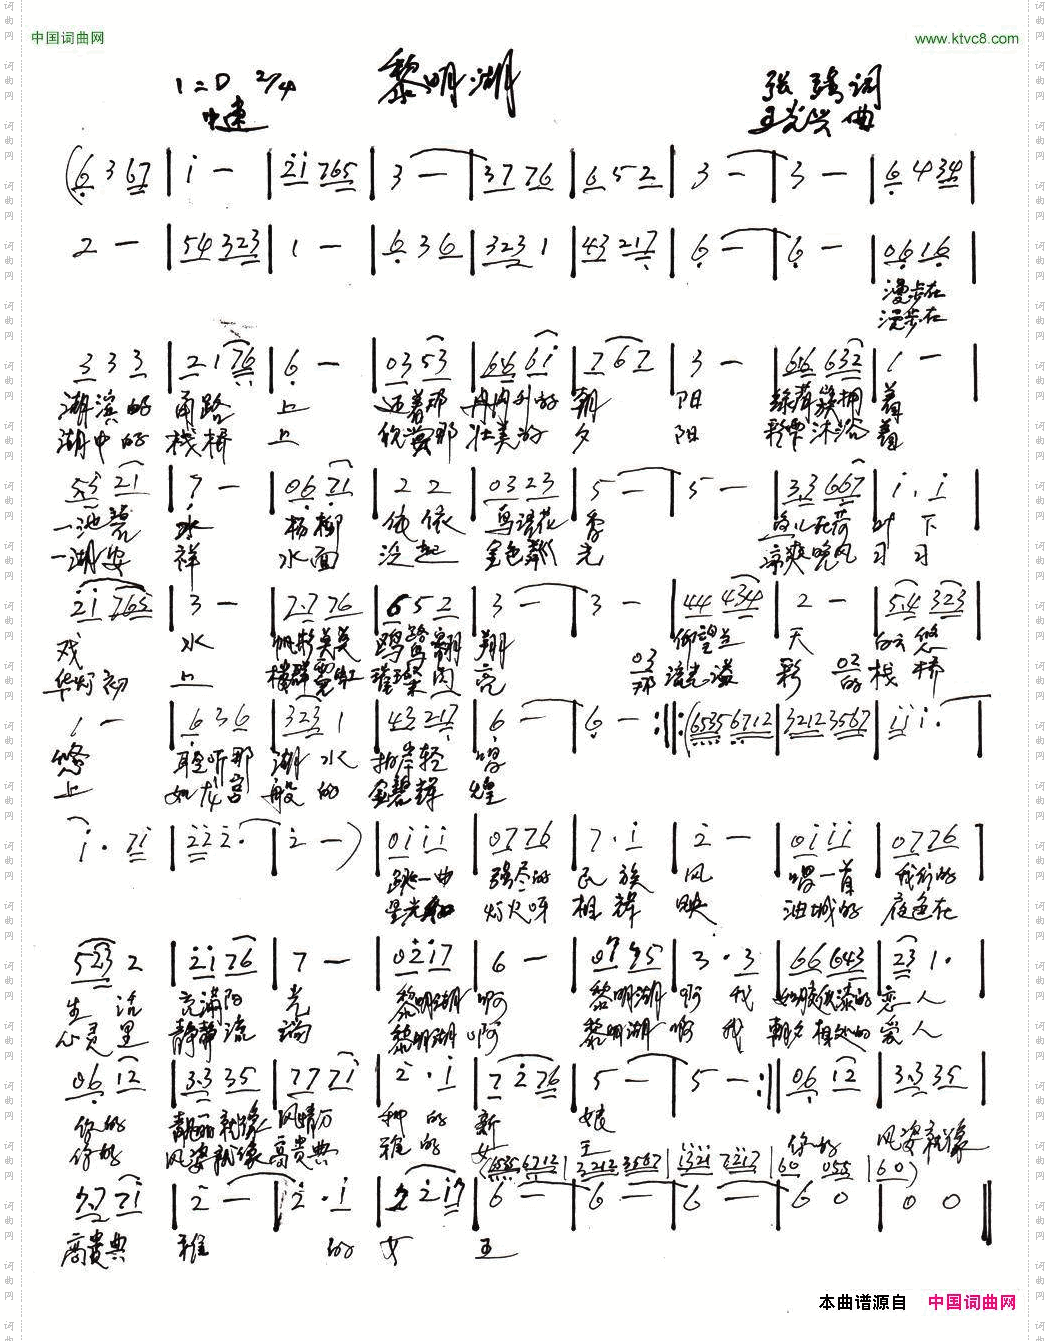 中国词曲网
www.ktvc8.com
黎明湖
1=D 2/4
中速
张 词
王光兴 曲
(6 3 67 | i - | 2i 765 | 3 - | 37 76 | 6 5 2 | 3 - | 3 - | 6 4 34 |
2 - | 54 323 | 1 - | 6 3 6 | 323 1 | 43 217 | 6 - | 6 - | 06 16 |
漫步在
漫步在
3 3 3 | 2 1 76 | 6 - | 03 53 | 66 6i | 7 6 7 | 3 - | 66 632 | 1 - |
湖滨的 甬路 上 迎着那 冉冉升的 朝 阳 绿荷簇拥 着
湖中的 栈桥 上 欣赏那 壮美的 夕 阳 彩霞沐浴 着
55 21 | 7 - | 06 71 | 2 2 | 03 23 | 5 - | 5 - | 33 667 | i. i |
一池碧 水 杨柳 依依 鸟语花 香 鱼儿在荷 叶 下
一湖安 祥 水面 泛起 金色粼 光 凉爽晚风 习 习
2i 765 | 3 - | 77 76 | 6 5 2 | 3 - | 3 - | 44 434 | 2 - | 5.4 323 |
戏 水 帆影点点 鸥鹭翱 翔 仰望兰 天 白云 悠
03 02
华灯初 上 楼群霓虹 璀璨闪 亮 那 流光溢 彩 的 栈 桥
1 - | 6 3 6 | 323 1 | 43 217 | 6 - | 6 - :||: (6535 6712 | 3212 3567 | iii. |
悠 聆听那 湖 水 拍岸轻 唱
上 如龙宫 般 的 金碧辉 煌
i. 7i | 222. | 2 -) | 0iii | 0776 | 7. i | 2 - | 0iii | 0776 |
跳一曲 强尽的 民 族 风 唱一首 我们的
星光和 灯火呀 相 辉 映 油城的 夜色在
523 2 | 2i 76 | 7 - | 02i7 | 6 - | 0775 | 3. 3 | 66 643 | 23 1. |
生 活 充满阳 光 黎明湖 啊 黎明湖 啊 我 如胶似漆的 恋 人
心灵 里 静静流 淌 黎明湖 啊 黎明湖 啊 我 朝夕相处的 爱 人
06 12 | 3.3 35 | 77 7i | 2. i | 7 2 76 | 5 - | 5 - :|| 06 12 | 3.3 35 |
你的 靓丽就像 风情万 种 的 新 娘 你的 风姿就像
你的 风姿就像 高贵典 雅 的 女 王
(6535 6712 | 3212 3567 | i321 7217 | 60 055 | 60)
77 7i | 2 - | 2. i | 7 2 i7 | 6 - | 6 - | 6 - | 6 0 | 0 0 ||
高贵典 雅 的 女 王
本曲谱源自 中国词曲网